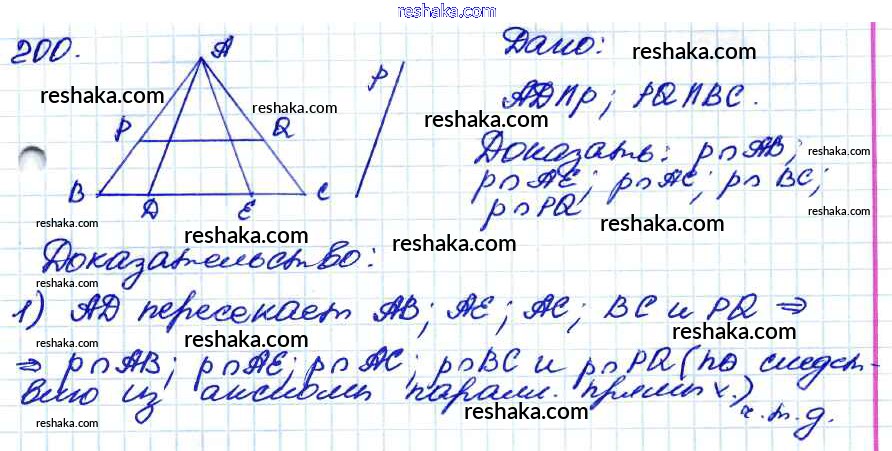 reshaka.com
200.
A
P
Q
B
D
E
C
p
Дано:
reshaka.com
reshaka.com
reshaka.com
AD∩p; PQ∩BC.
reshaka.com
Доказать: p∩AB;
reshaka.com
p∩AE; p∩AC; p∩BC;
p∩PQ
reshaka.com
reshaka.com
reshaka.com
reshaka.com
reshaka.com
reshaka.com
Доказательство:
reshaka.com
1) AD пересекает AB; AE; AC; BC и PQ ⇒
reshaka.com
reshaka.com
⇒ p∩AB; p∩AE; p∩AC; p∩BC и p∩PQ (по следст-
вию из аксиомы паралл. прямых.)
ч.т.д.
reshaka.com
reshaka.com
reshaka.com
reshaka.com